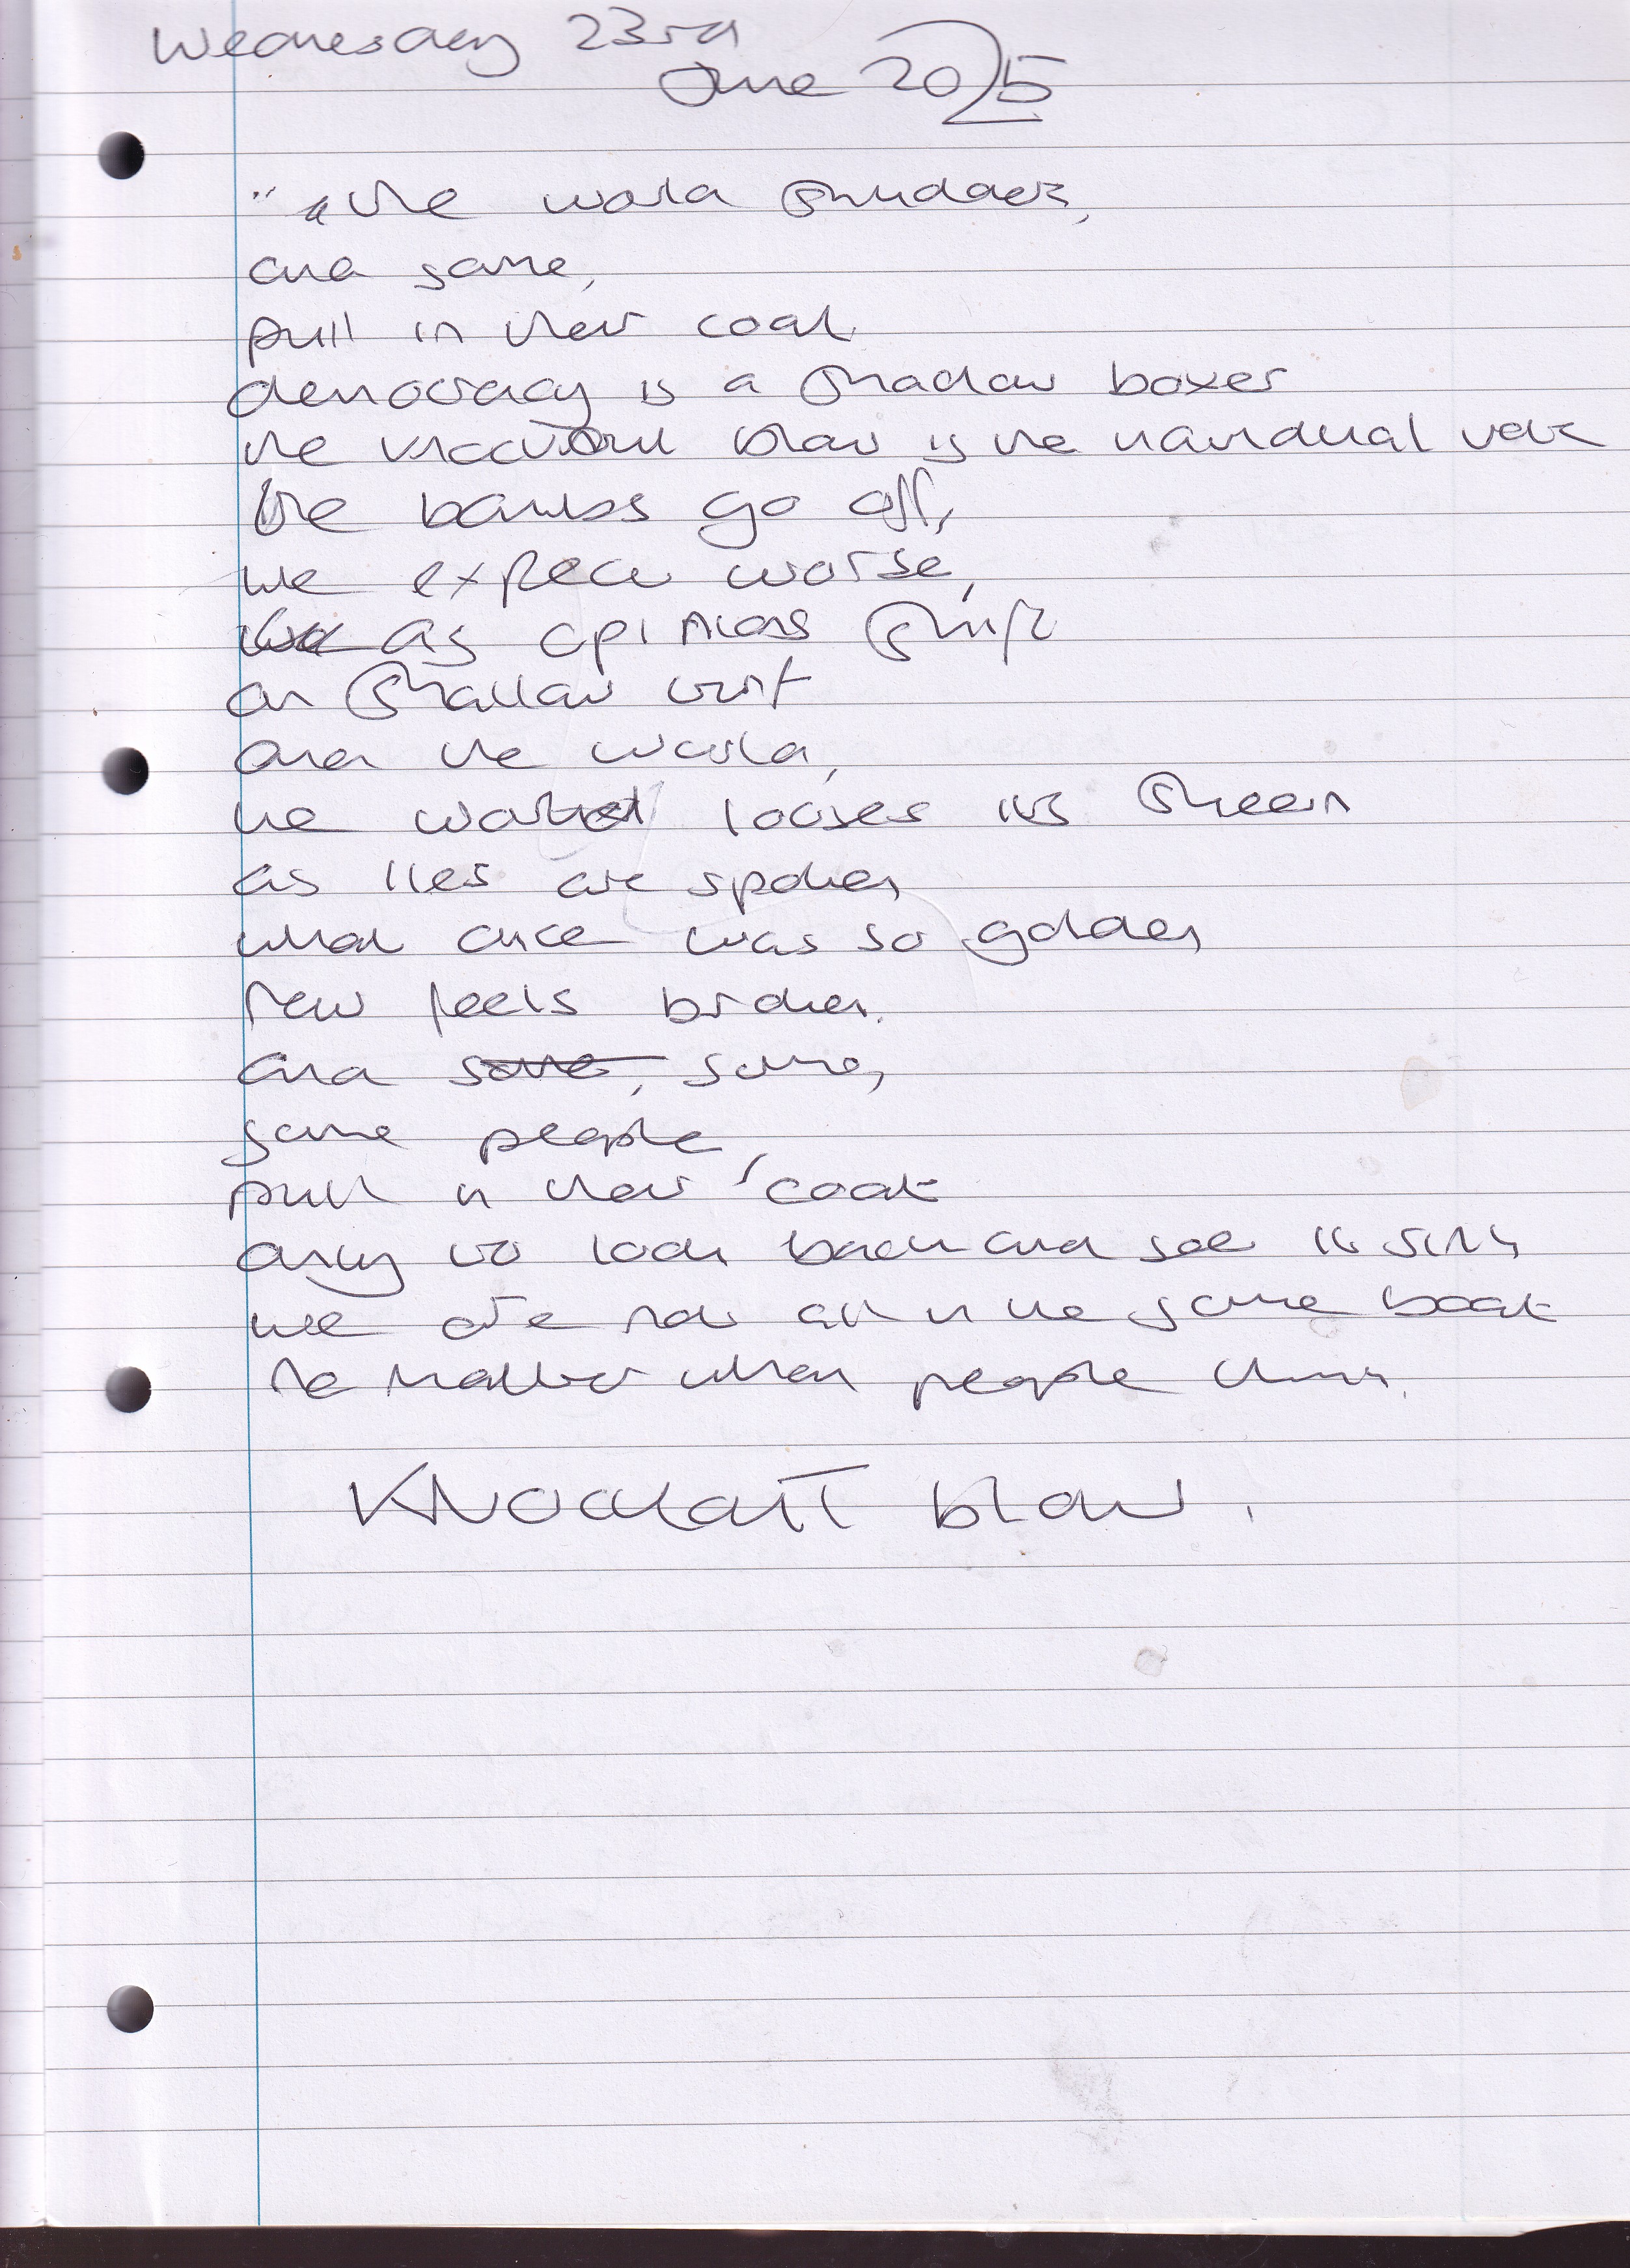 Wednesday 23rd
June 2025
"the world shudders,
and some,
pull in their coat
democracy is a shadow boxer
the knockout blow is the individual vote
the bombs go off,
we expect worse,
as opinions shift
on shallow turf
and the world,
the world looses its sheen
as lies are spoken
what once was so golden
now feels broken.
and some, some,
some people,
pull in their coat
only to look back and see it sink
we are now all in the same boat
no matter what people think.
KNOCKOUT blow.